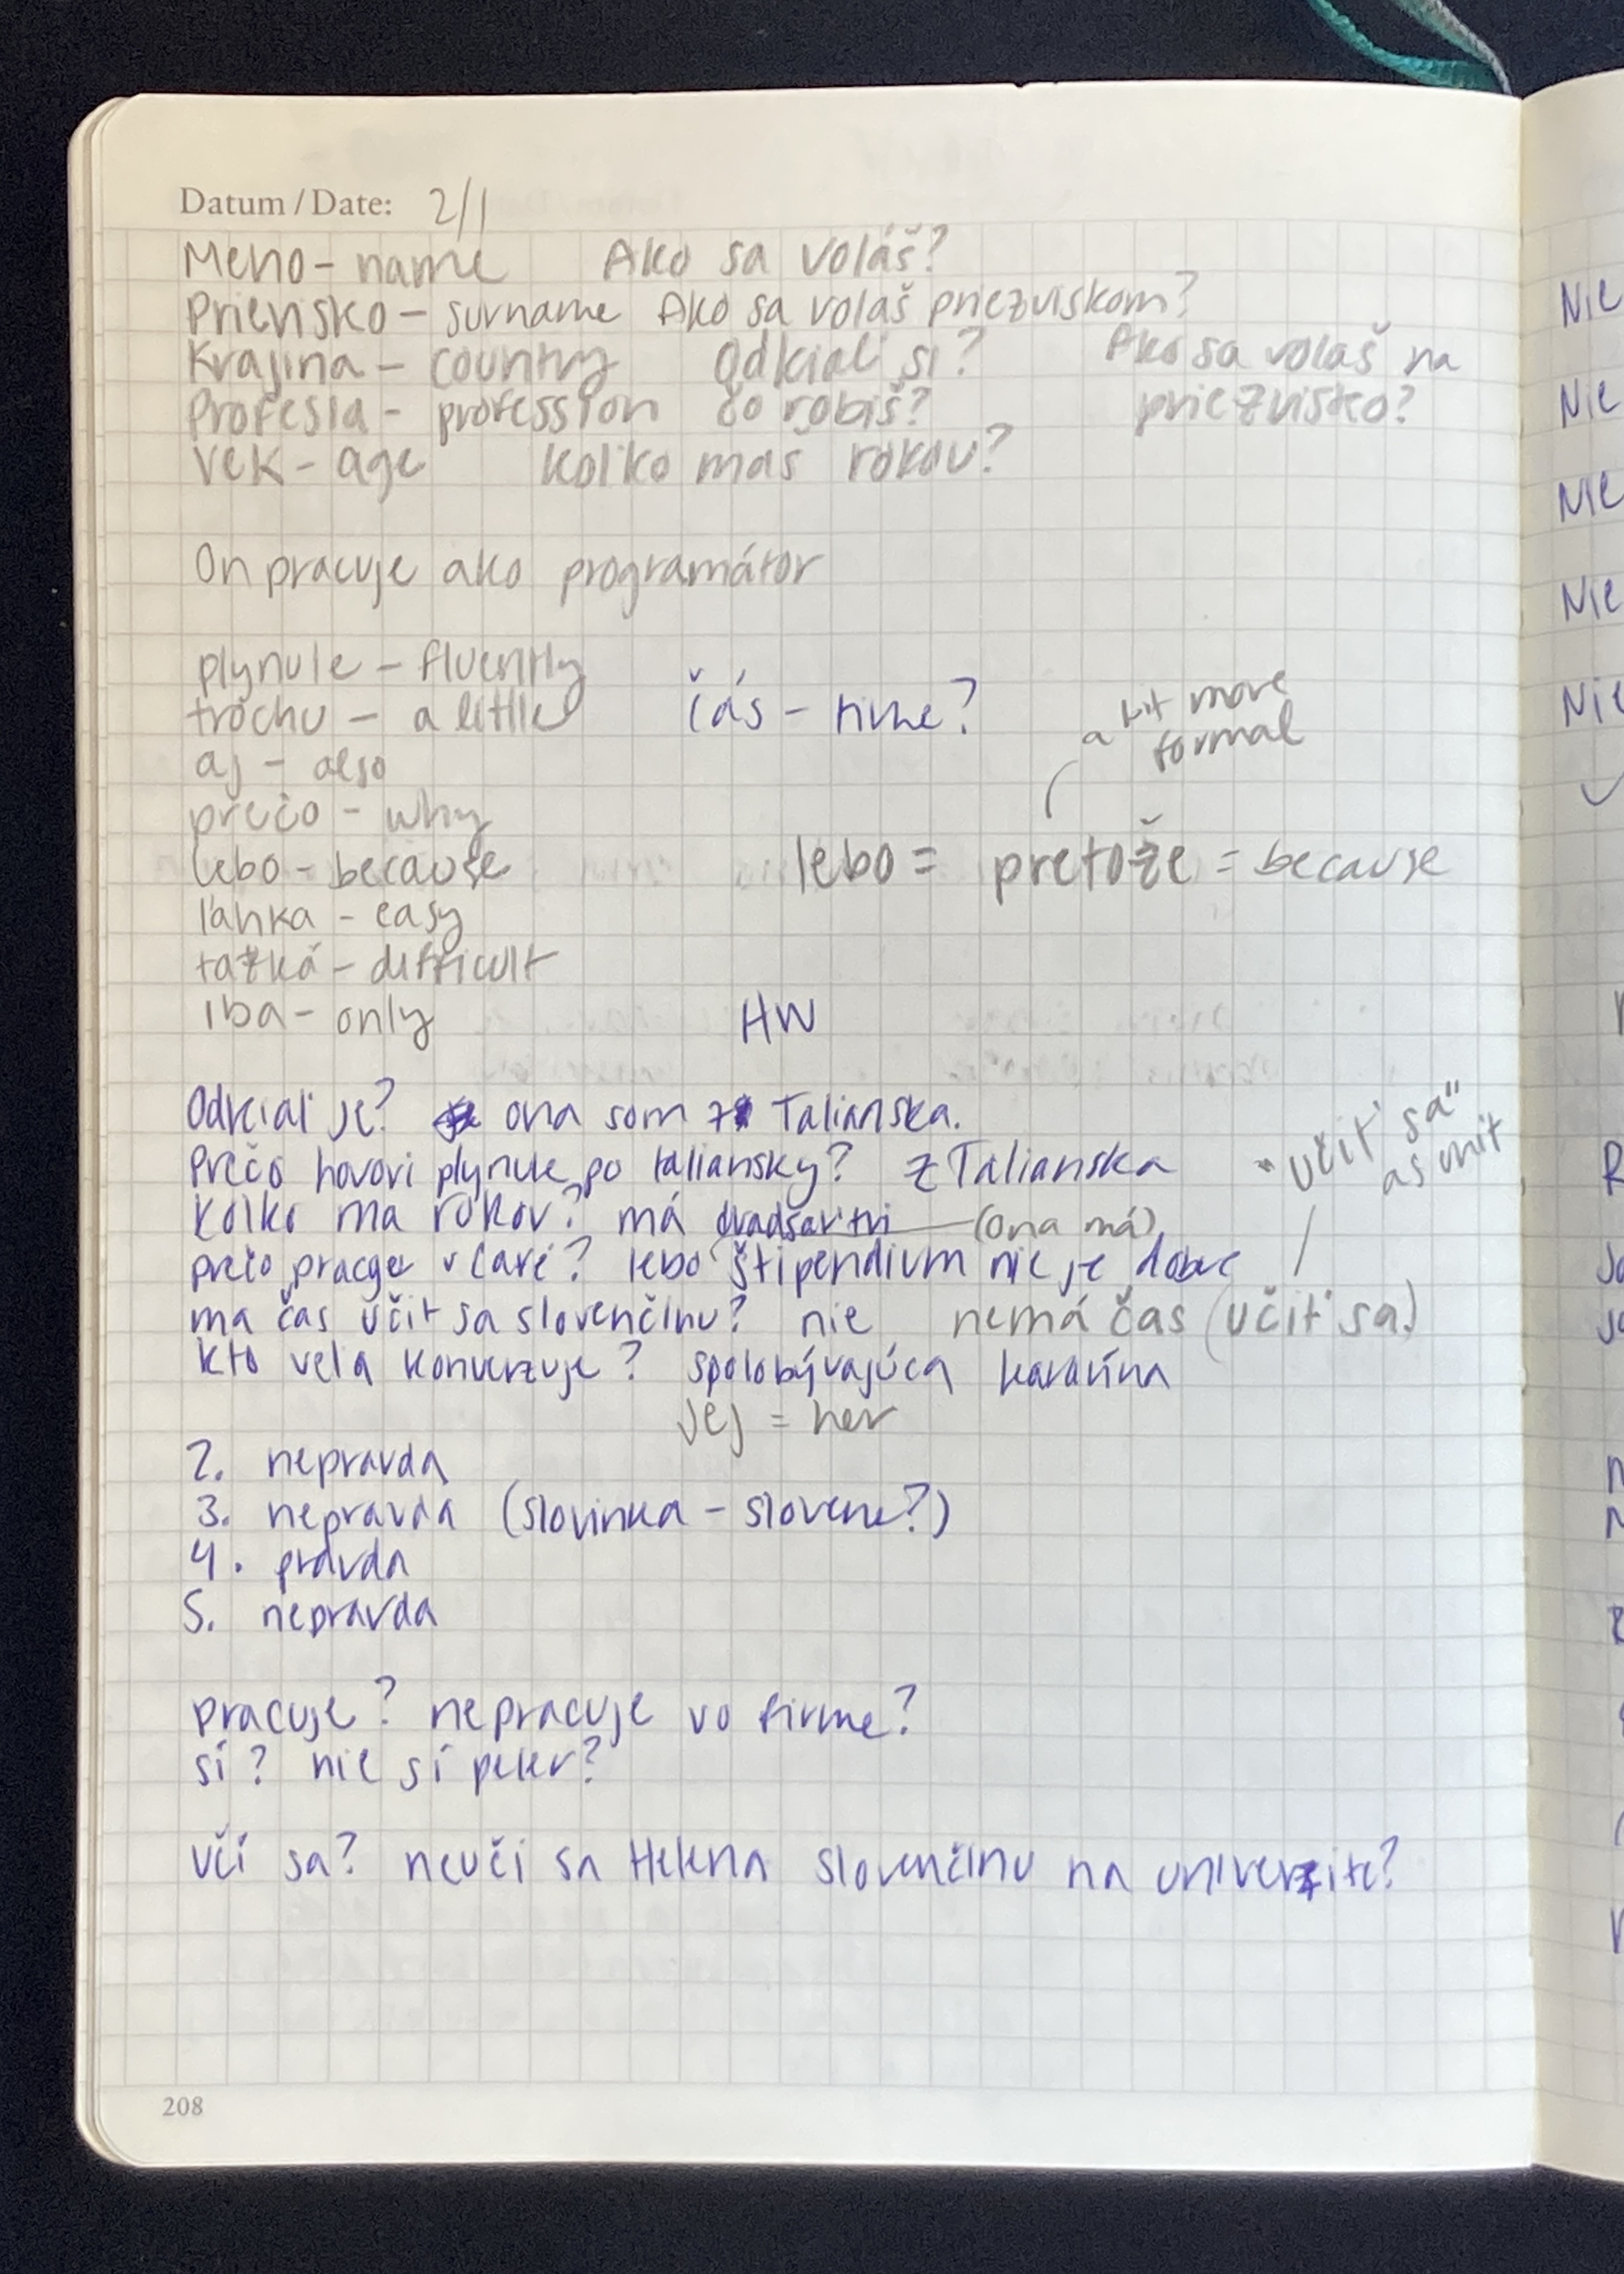 Datum / Date: 2/1
Meno - name Ako sa voláš?
Prienisko - surname Ako sa volaš priezviskom?
Krajina - country Odkiaľ si? Ako sa volaš na
Profesia - profession čo robiš? priezvisko?
Vek - age koľko maš rokov?
On pracuje ako programátor
plynule - fluently
trochu - a little čás - time? a bit more
formal
aj - also
prečo - why
lebo - because lebo = pretože = because
ľahka - easy
ťažká - difficult
iba - only HW
Odkiaľ je? ona som z Talianska.
Prečo hovori plynule po taliansky? z Talianska "učiť sa"
as unit
Koľko ma rokov? má dvadsaťtri (ona má)
prečo pracuje v care? lebo štipendium nie je dobre
ma čas učiť sa slovenčinu? nie nemá čas (učiť sa)
kto veľa konverzuje? spolobývajúca karolína
jej = her
2. nepravda
3. nepravda (slovinka - slovene?)
4. pravda
5. nepravda
pracuje? nepracuje vo firme?
si? nie si peter?
učí sa? neučí sa Helena slovenčinu na univerzite?
208
Nie
Nie
Nie
Nie
Nie